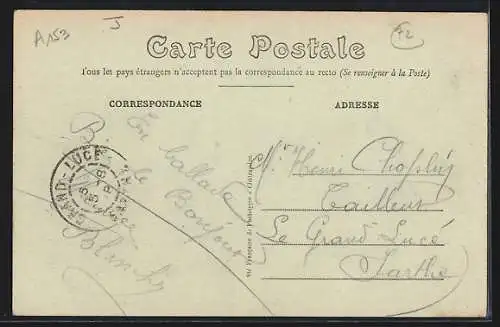 A153
J
F2
Carte Postale
Tous les pays étrangers n'acceptent pas la correspondance au recto (Se renseigner à la Poste)
CORRESPONDANCE
ADRESSE
En ballade
Bonjour
Blanche
GRAND-LUCÉ
Mr Henri
Tailleur
Le Grand Lucé
Sarthe